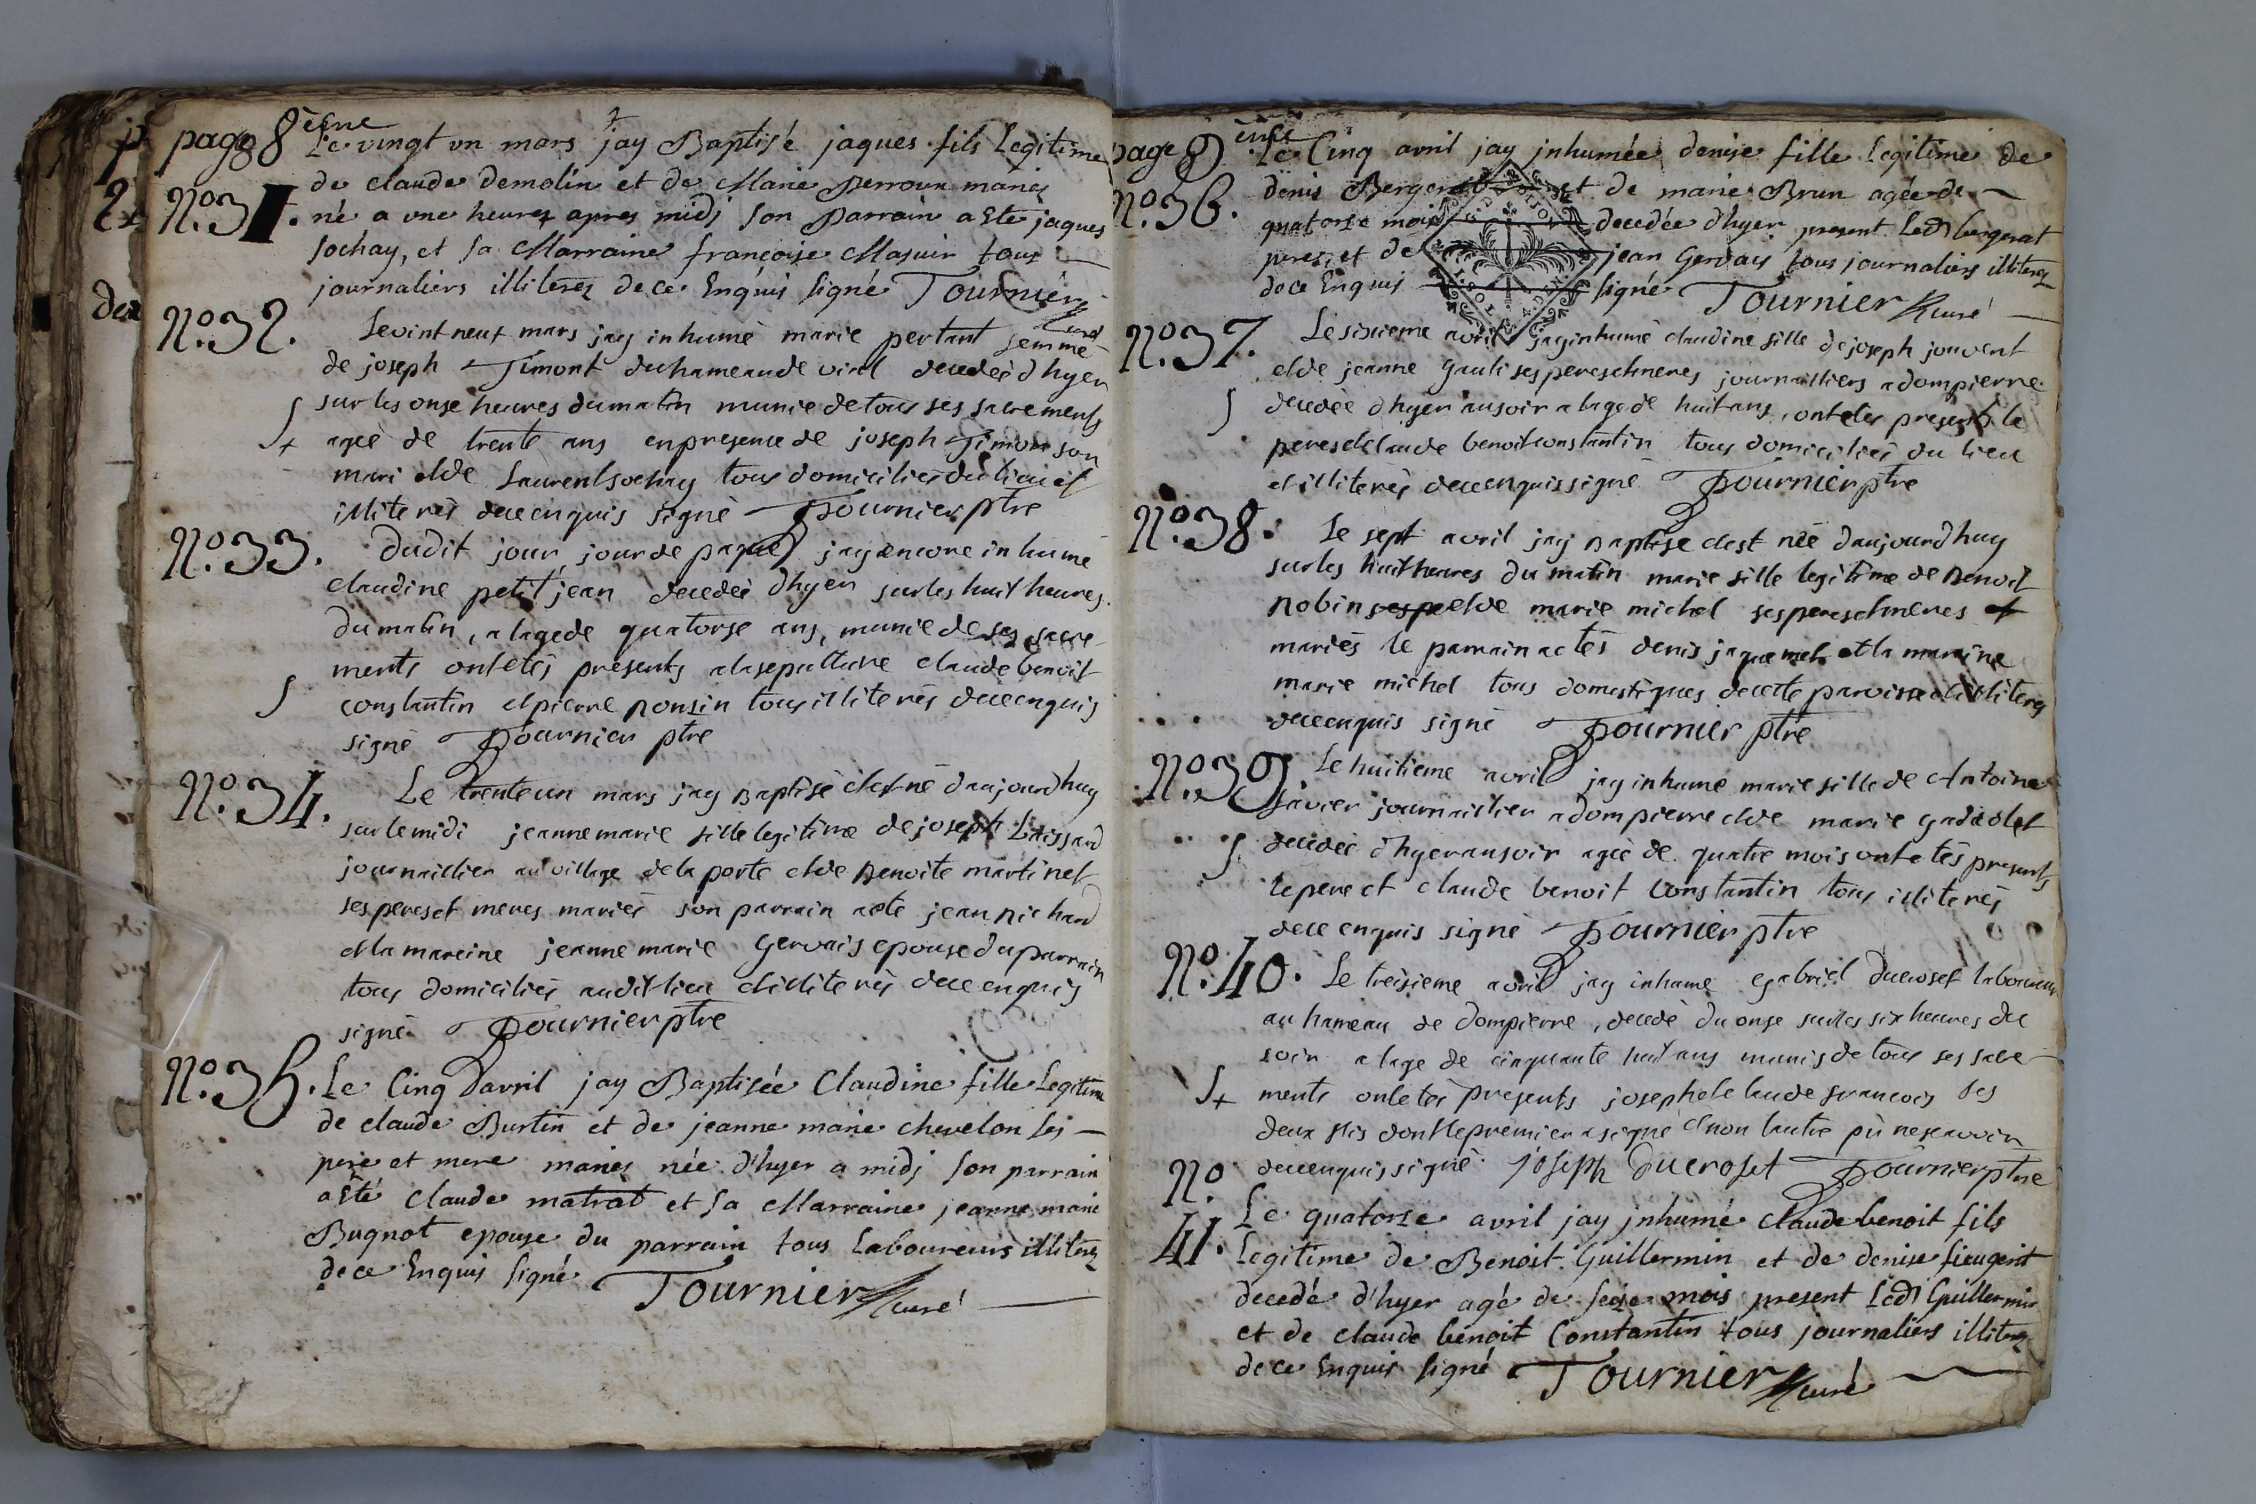 page 8ème
Le vingt un mars jay Baptisé jaques fils Legitime
N.º 31. de claude demolin et de Marie Perroux mariés
né a une heures apres midj son Parrain a Eté jaques
sochay, et sa Marraine françoise Masuir tous
journaliers illiterez de ce Enquis signé Tournier
curé
N.º 32. Le vint neuf mars jay inhumé marie pertant femme
de joseph Timont du hameau de viril decedèè dhyer
sur les onse heures du matin munie de tous ses sacrements
ageè de trente ans en presence de joseph Timon son
mari et de Laurent sochay tous domiciliès du lieu et
illiterès de ce enquis signè Tournier ptre
N.º 33. Dudit jour jour de paques jay encore inhumè
claudine petitjean decedèè dhyer sur les huit heures
du matin, a lage de quatorse ans, munie de ses sacre-
ments ont etès presents a la sepulture claude benoit
constantin et pierre ronsin tous illiterès de ce enquis
signè Tournier ptre
N.º 34. Le trente un mars jay Baptisè et est nè daujourdhuy
sur le midi jeanne marie fille legitime de joseph Laissard
journaillier au village de la porte et de Benoite martinet
ses peres et meres mariès son parrain a ete jean richard
et la mareine jeanne marie Gervais epouse du parrain
tous domiciliès audit lieu et illiterès de ce enquis
signè Tournier ptre
N.º 35. Le Cinq Davril jay Baptisée Claudine fille Legitime
de claude Burtin et de jeanne marie chevelon ses
pere et mere mariés née d'hyer a midj son parrain
a Eté Claude matrat et sa Marraine jeanne marie
Buqnot epouse du parrain tous Laboureurs illiterez
de ce Enquis signé Tournier curé
page 9ème
Le Cinq avril jay jnhumée denise fille Legitime de
N.º 36. denis Bergerat et de marie Brun agée de
quatorse mois decedée d'hyer present Led bergerat
pere, et de jean Gervais tous journaliers illiterez
de ce Enquis signé Tournier curé
N.º 37. Le sixieme avril jay inhumè claudine fille de joseph jouvent
et de jeanne Gauli ses peres et meres journailliers a dompierre
decedèè dhyer au soir a lage de huit ans, ont etes presents le
peres et claude benoit constantin tous domiciliès du lieu
et illiterès de ce enquis signè Tournier ptre
N.º 38. Le sept avril jay Baptise et est nèè daujourdhuy
sur les huit heures du matin marie fille legitime de Benoit
Robin ses pe et de marie michel ses peres et meres et
mariès le parrain a etès denis jaquemet et la maraine
marie michel tous domestiques de cette paroisse et illiteres
de ce enquis signè Tournier ptre
N.º 39. Le huitieme avril jay inhumè marie fille de Antoine
savier journaillier a dompierre et de marie gadiolet
decedèè dhyer au soir ageè de quatre mois ont etès presents
le pere et claude benoit Constantin tous illiterès
de ce enquis signè Tournier ptre
N.º 40. Le treisieme avril jay inhumè Gabriel Ducroset laboureur
au hameau de dompierre, decedè du onse sur les six heures du
soir a lage de cinquante huit ans munis de tous ses sacre-
ments ont etès presents joseph et claude francois ses
deux fils dont le premier a signè et non lautre pù ne scavoir
de ce enquis signè joseph ducroset Tournier ptre
N.º 41. Le quatorse avril jay jnhumé claude benoit fils
Legitime de Benoit Guillermin et de denise fieugerit
decedé d'hyer agé de seize mois present Led Guillermin
et de claude benoit Constantin tous journaliers illiterez
de ce Enquis signé Tournier curé